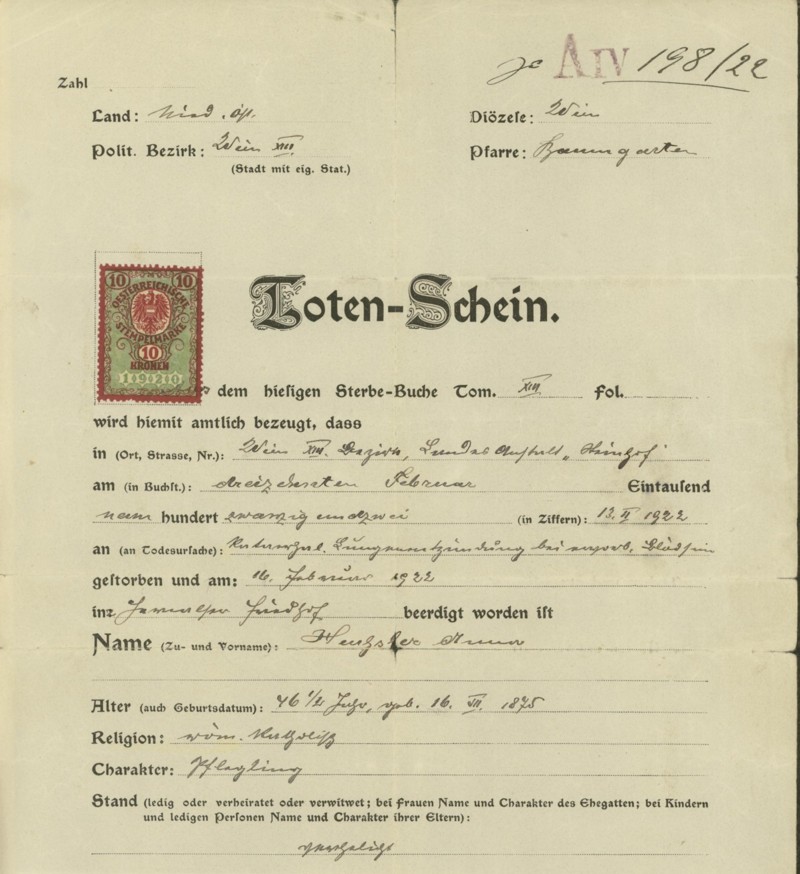 A IV 198/22
Zahl
Land: Nied. Öst.
Diözese: Wien
Polit. Bezirk: Wien XIII
Pfarre: Baumgarten
(Stadt mit eig. Stat.)
10 10
OESTERREICHISCHE
STEMPELMARKE
10
KRONEN
1920
Toten-Schein.
dem hiesigen Sterbe-Buche Tom. XIII fol.
wird hiemit amtlich bezeugt, dass
in (Ort, Strasse, Nr.): Wien XIII. Bezirk, Landes Anstalt „Steinhof"
am (in Buchst.): dreizehnten Februar Eintausend
neun hundert zwanzigundzwei (in Ziffern): 13. II 1922
an (an Todesursache): Katarrhal. Lungenentzündung bei erworb. Blödsinn
gestorben und am: 16. Februar 1922
in: Friedhof beerdigt worden ist
Name (Zu- und Vorname): Anna
Alter (auch Geburtsdatum): 46 1/2 Jahr, geb. 16. VII. 1875
Religion: röm. katholisch
Charakter: Pflegling
Stand (ledig oder verheiratet oder verwitwet; bei Frauen Name und Charakter des Ehegatten; bei Kindern
und ledigen Personen Name und Charakter ihrer Eltern):